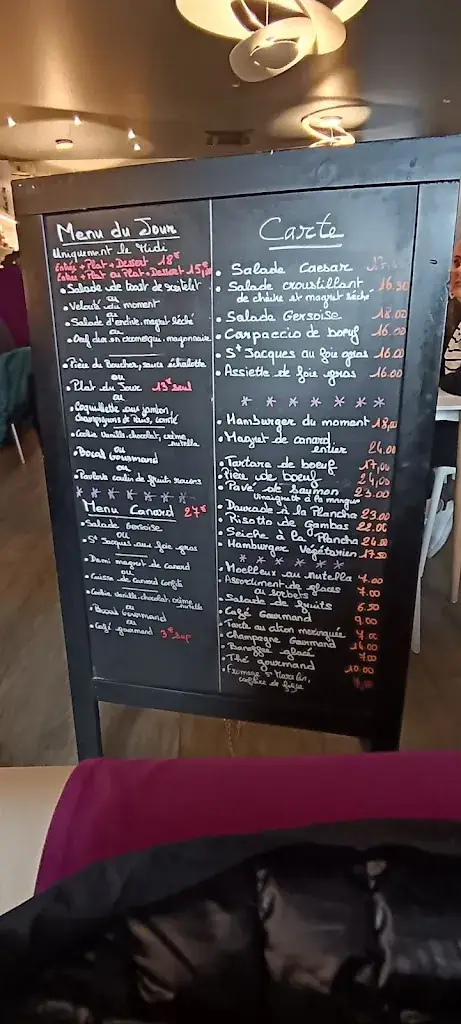 Menu du Jour
Uniquement le Midi
Entrée + Plat + Dessert 18€
Entrée + Plat ou Plat + Dessert 15€
• Salade de toast de
ou
• Velouté du moment
ou
• Salade d'endive, magret séché
ou
• Oeuf dur en cromesqui, mayonnaise
• Pièce du Boucher, sauce échalotte
ou
• Plat du Jour 13€ seul
ou
• Coquillette au jambon
champignons de Paris, comté
• Cookie vanille, chocolat, crème
nutella
ou
• Bocal Gourmand
ou
• coulis de fruits rouges
* * * * * * *
Menu Canard 27€
• Salade Gersoise
ou
• St Jacques au foie gras
• Demi magret de canard
ou
• Cuisse de Canard Confite
• Cookie vanille, chocolat, crème
nutella
ou
• Bocal Gourmand
ou
• Café gourmand 3€ sup
Carte
• Salade Caesar
• Salade croustillant 16.50
de chèvre et magret séché
• Salade Gersoise 18.00
• Carpaccio de boeuf 16.00
• St Jacques au foie gras 16.00
• Assiette de foie gras 16.00
* * * * * * *
• Hamburger du moment 18,00
• Magret de canard
entier 24.00
• Tartare de boeuf 17,00
• Pièce de boeuf 24,00
• Pavé de saumon 23.00
Vinaigrette à la mangue
• Daurade à la Plancha 23.00
• Risotto de Gambas 22.00
• Seiche à la Plancha 24.00
• Hamburger Végétarien 17.50
* * * * * * *
• Moelleux au nutella 7.00
Assortiment de glaces
ou sorbets 7.00
• Salade de fruits 6.50
• Café Gourmand 9.00
Tarte au citron meringuée 7.00
• Champagne Gourmand 14.00
• glacé 7.00
• Thé gourmand 10.00
• Fromage St Marcelin,
confiture de figue